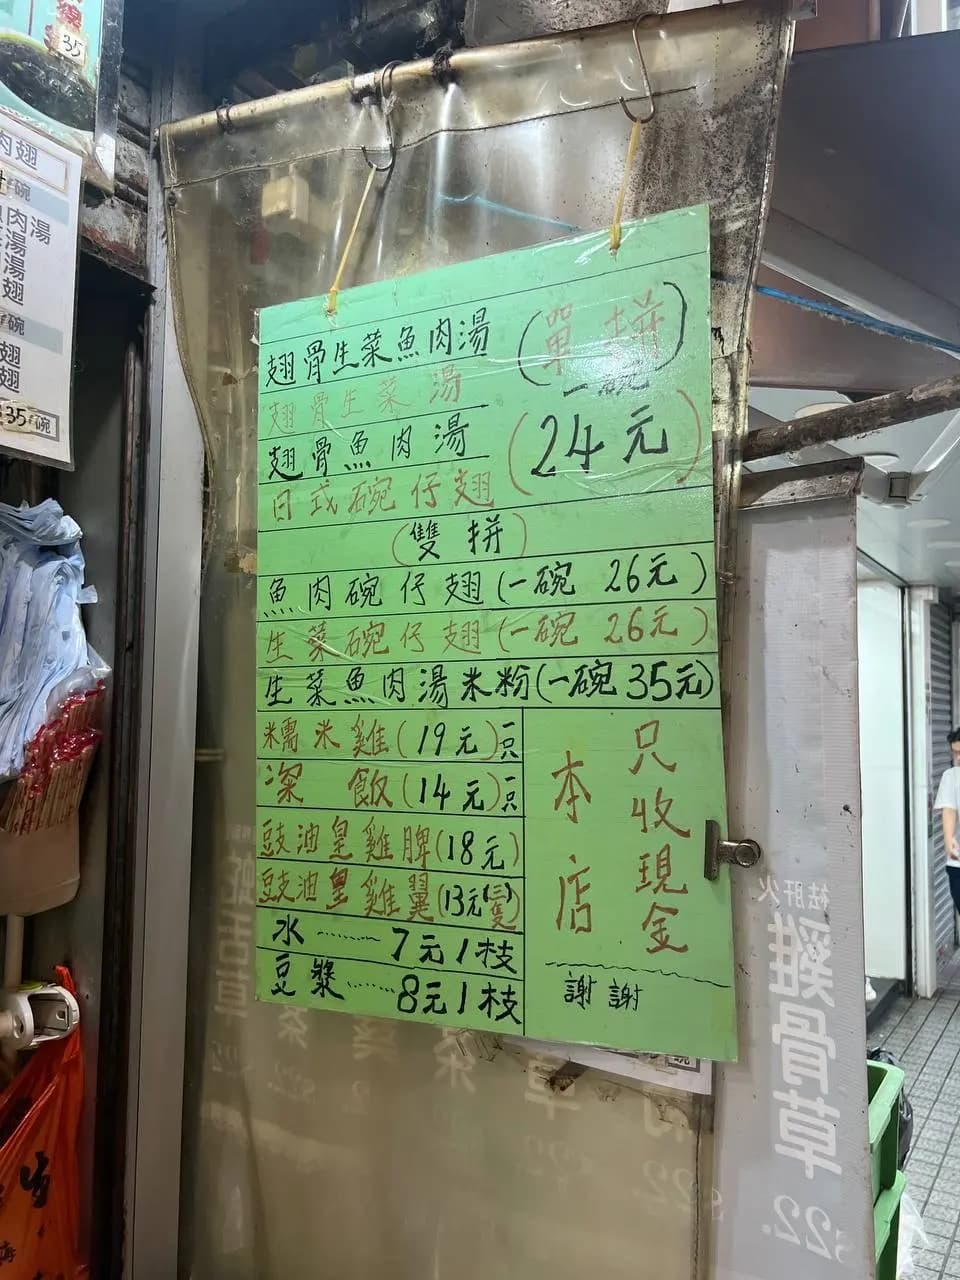 35
肉翅
碗
肉湯
湯
湯
翅
碗
翅
翅
35/碗
翅骨生菜魚肉湯
翅骨生菜湯
翅骨魚肉湯
日式碗仔翅
(單拼)
一碗
(24元)
(雙拼)
魚肉碗仔翅(一碗 26元)
生菜碗仔翅(一碗 26元)
生菜魚肉湯米粉(一碗 35元)
糯米雞(19元)一只
粢飯(14元)一只
豉油皇雞脾(18元)
豉油皇雞翼(13元(三隻))
水………7元1枝
豆漿………8元1枝
本店
只收現金
謝謝
祛肝火
雞骨草
$22.